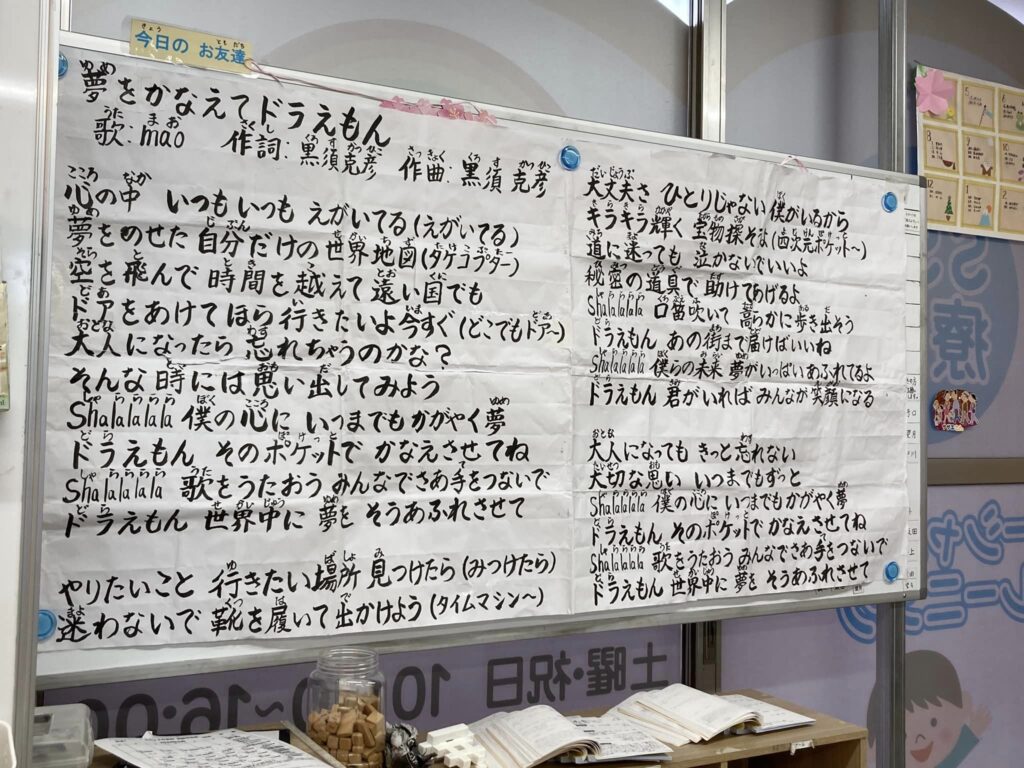 今日のお友達
夢をかなえてドラえもん
歌:mao 作詞:黒須克彦 作曲:黒須克彦
心の中 いつもいつも えがいてる(えがいてる)
夢をのせた 自分だけの 世界地図(タケコプター)
空を飛んで 時間を越えて 遠い国でも
ドアをあけてほら 行きたいよ今すぐ(どこでもドア〜)
大人になったら 忘れちゃうのかな?
そんな 時には 思い出してみよう
Shalalalala 僕の心に いつまでもかがやく夢
ドラえもん そのポケットで かなえさせてね
Shalalalala 歌をうたおう みんなでさあ手をつないで
ドラえもん 世界中に 夢を そうあふれさせて
やりたいこと 行きたい場所 見つけたら(みつけたら)
迷わないで 靴を履いて 出かけよう(タイムマシン〜)
大丈夫さ ひとりじゃない 僕がいるから
キラキラ輝く 宝物探そな(四次元ポケット〜)
道に迷っても 泣かないでいいよ
秘密の道具で 助けてあげるよ
Shalalalala 口笛吹いて 高らかに歩き出そう
ドラえもん あの街まで 届けばいいね
Shalalalala 僕らの未来 夢がいっぱいあふれてるよ
ドラえもん 君がいれば みんなが 笑顔になる
大人になっても きっと忘れない
大切な思い いつまでもずっと
Shalalalala 僕の心に いつまでもかがやく夢
ドラえもん そのポケットで かなえさせてね
Shalalalala 歌をうたおう みんなでさあ手をつないで
ドラえもん 世界中に 夢を そうあふれさせて
土曜・祝日